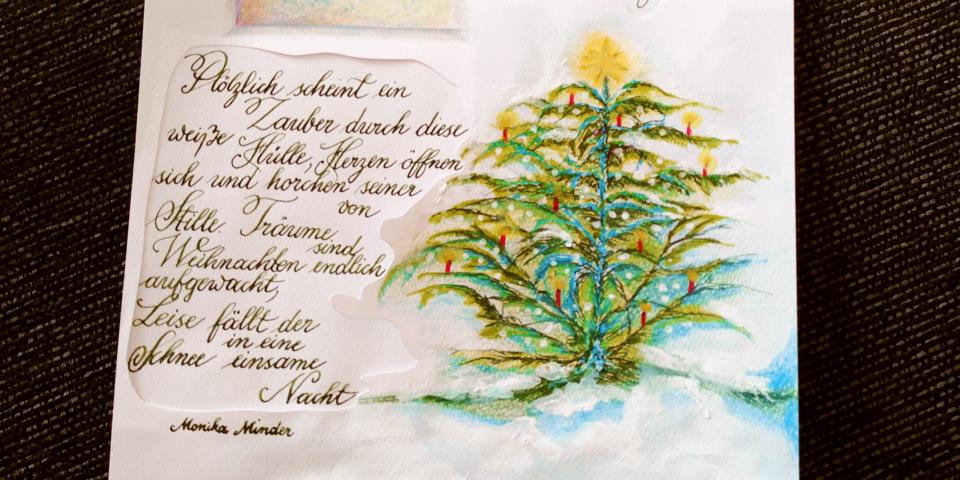 Plötzlich scheint ein
Zauber durch diese
weiße Hülle, Herzen öffnen
sich und horchen seiner
Stille. Träume von
Weihnachten sind
aufgewacht, endlich
Leise fällt der
Schnee in eine
einsame
Nacht
Monika Minder